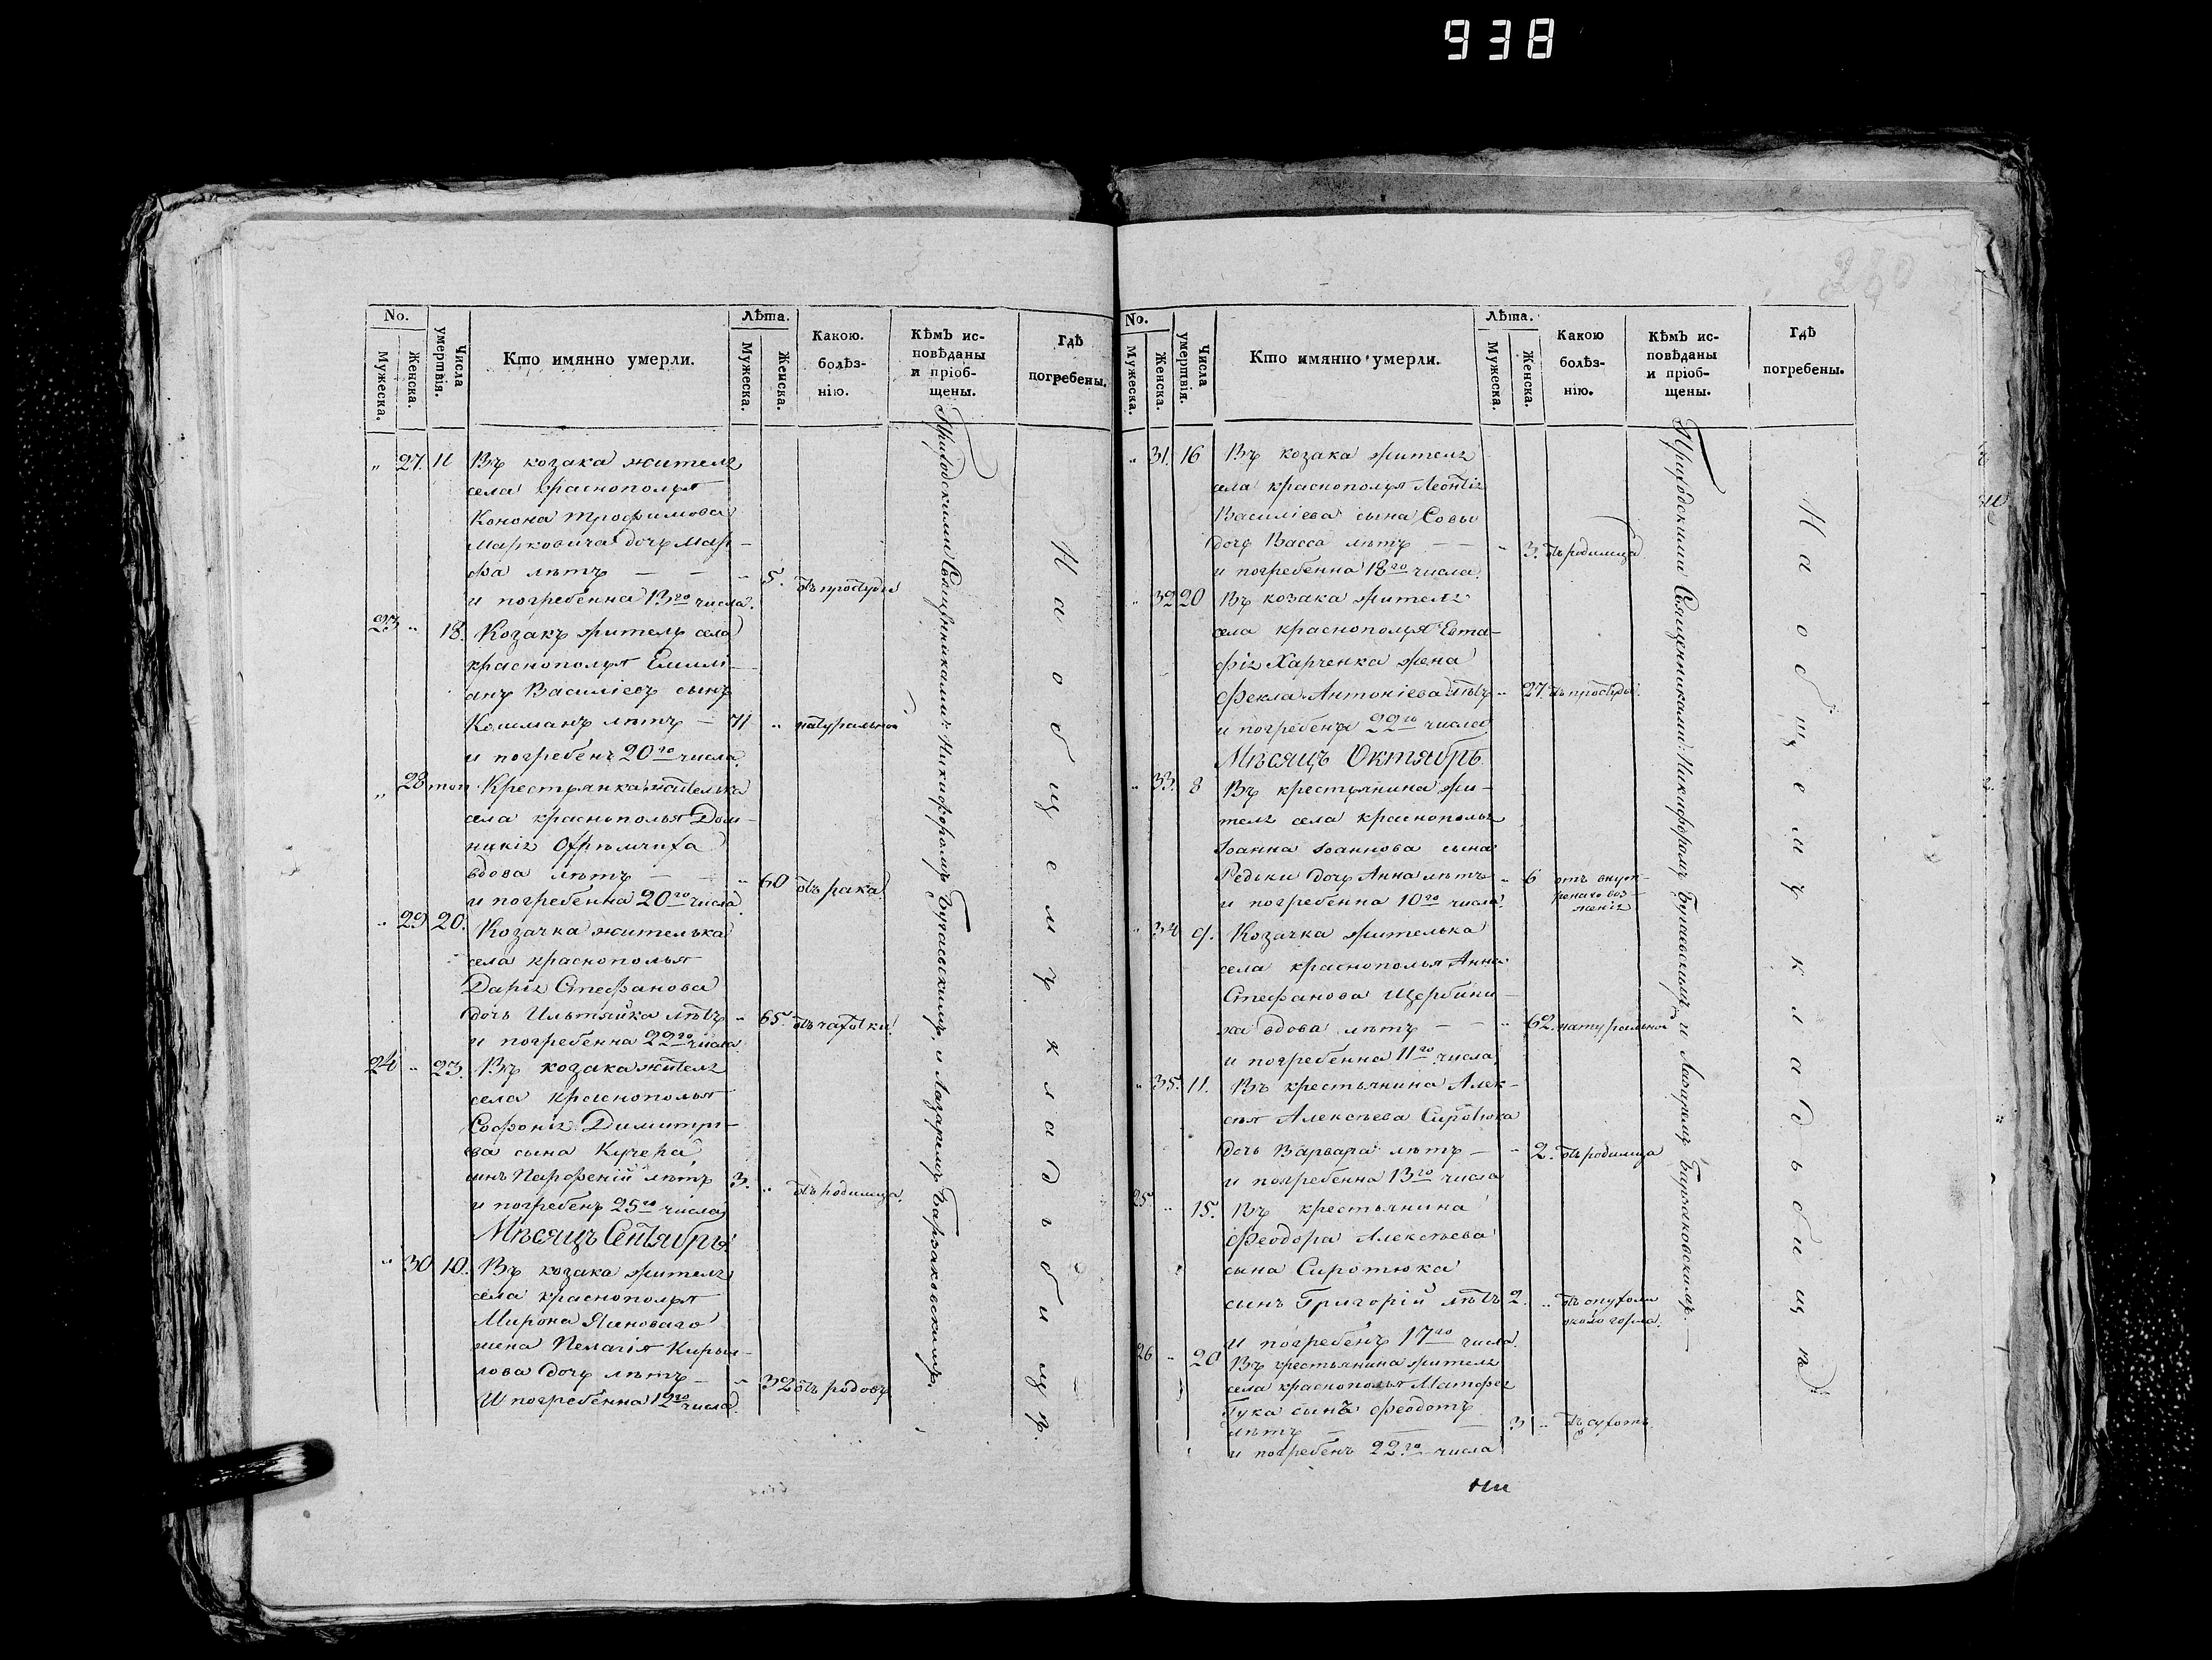 938
280
No.
Мужеска.
Женска.
Числа умертвія.
Кто имянно умерли.
Лѣта.
Мужеска.
Женска.
Какою.
болѣз-
нію.
Кѣмъ ис-
повѣданы
и пріоб-
щены.
Гдѣ
погребены.
" 27. 11 Въ козака жителя
села краснополья
Конона Трофимова
Марковича дочь Мар-
фа лѣтъ — — " 5. отъ простуды
и погребенна 13го числа.
23 " 18. Козакъ житель села
краснополья Емилі-
анъ Василіевъ сынъ
Кошманъ лѣтъ — 71 " натуральною
и погребенъ 20го числа.
" 28 той Крестьянка жителька
села краснополья Дом-
никія
вдова лѣтъ — " 60 отъ рака
и погребенна 20го числа.
" 29 20. Козачка жителька
села краснополья
Дарія Стефанова
дочь лѣтъ " 65. отъ чахотки.
и погребенна 22го числа.
24 " 23. Въ козака жителя
села краснополья
Софонія Димитрі-
ева сына Кучера
сынъ Парфеній лѣтъ 3. " отъ родимца.
и погребенъ 25го числа
Мѣсяцъ Сентябрь.
" 30 10. Въ козака жителя
села краснополья
Мирона Яиноваго
жена Пелагія Кирил-
лова дочь лѣтъ — " 32 отъ родовъ
И погребенна 12го числа.
Приходскими Священниками: Никифоромъ Бугаевскимъ, и Лазаремъ Барзаковскимъ.
На общемъ кладъбищѣ.
No.
Мужеска.
Женска.
Числа умертвія.
Кто имянно умерли.
Лѣта.
Мужеска.
Женска.
Какою
болѣз-
нію.
Кѣмъ ис-
повѣданы
и пріоб-
щены.
Гдѣ
погребены.
" 31. 16 Въ козака жителя
села краснополья Леонтія
Василіева сына Совы
дочь Васса лѣтъ — — " 3. отъ родимца
и погребенна 18го числа.
" 32 20 Въ козака жителя
села краснополья Евта-
фія Харченка жена
Фекла Антоніева лѣтъ " 27. отъ простуды.
и погребенъ 22го числа
Мѣсяцъ Октябрь.
" 33. 8 Въ крестьянина жи-
теля села краснополья
Іоанна Іоаннова сына
Редьки дочь Анна лѣтъ " 6 отъ внут-
и погребенна 10го числа.
" 34 9. Козачка жителька
села краснополья Анна
Стефанова Щербини-
ха вдова лѣтъ — — " 62. натуральною
и погребенна 11го числа
" 35. 11. Въ крестьянина Алек-
сѣя Алексѣева Сиротюка
дочь Варвара лѣтъ — " 2. отъ родимца
и погребенна 13го числа
25 " 15. Въ крестьянина
Феодора Алексѣева
сына Сиротюка
сынъ Григорій лѣтъ 2. " отъ опухоли
около горла.
И погребенъ 17го числа.
26 " 20 Въ крестьянина жителя
села краснополья Матфея
Гука сынъ Феодотъ
лѣтъ — — 3 " отъ сухотъ
и погребенъ 22го числа
Приходскими Священниками: Никифоромъ Бугаевскимъ, и Лазаремъ Барзаковскимъ.—
На общемъ кладьбищѣ